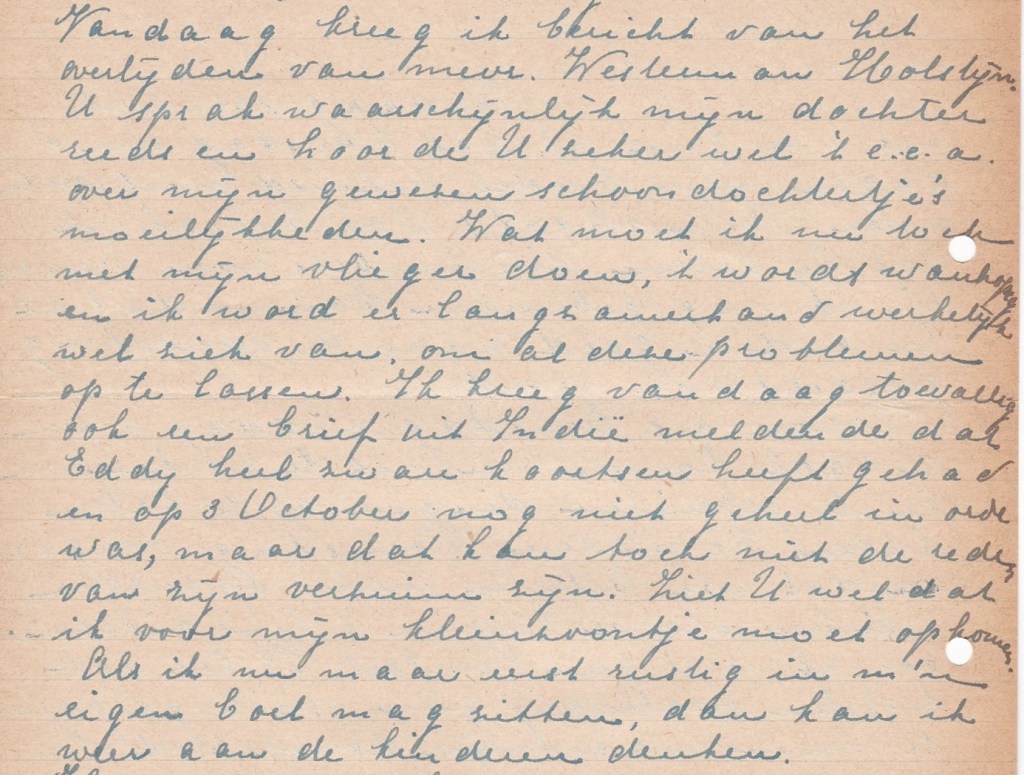 Vandaag kreeg ik bericht van het
overlijden van mevr. Westerman Holstijn.
U sprak waarschijnlijk mijn dochter
reeds en hoorde U zeker wel 't e.e.a.
over mijn gewezen schoondochtertje's
moeilijkheden. Wat moet ik nu toch
met mijn vlieger doen, 't wordt wanhopig
en ik word er langzamerhand werkelijk
wel ziek van, om al deze problemen
op te lossen. Ik kreeg vandaag toevallig
ook een brief uit Indië meldende dat
Eddy heel zware koortsen heeft gehad
en op 3 October nog niet geheel in orde
was, maar dat kan toch niet de reden
van zijn verzuim zijn. Ziet U wel dat
ik voor mijn kleinzoontje moet opkomen.
Als ik nu maar eerst rustig in m'n
eigen boel mag zitten, dan kan ik
weer aan de kinderen denken.